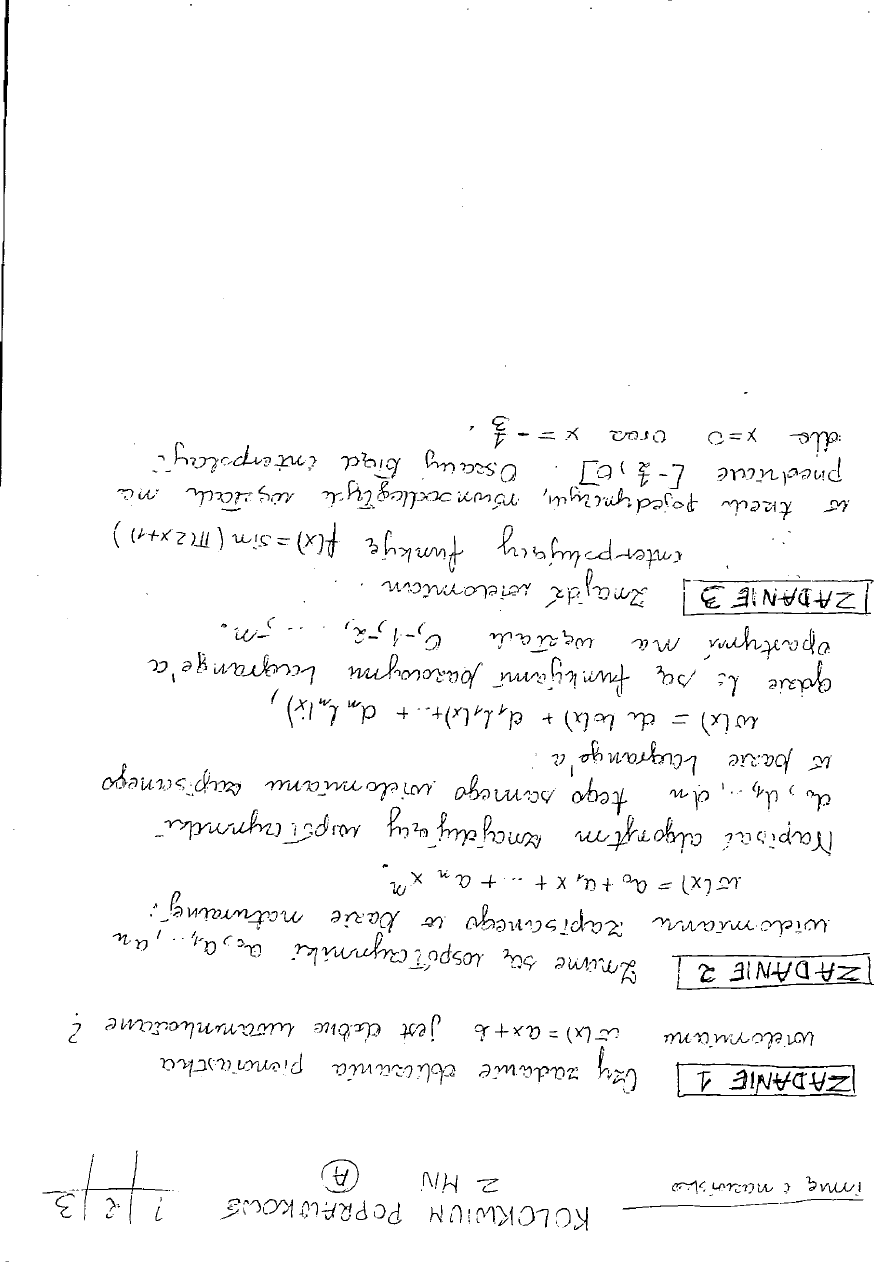 KOLOKWIUM POPRAWKOWE
imię i nazwisko Z MN (A) 1 2 3
ZADANIE 1 Czy zadanie obliczania pierwiastka
wielomianu w(x) = ax + b jest dobrze uwarunkowane ?
ZADANIE 2 Znane są współczynniki a₀, a₁, ..., aₙ
wielomianu zapisanego w bazie naturalnej:
w(x) = a₀ + a₁x + ... + aₙxⁿ.
Napisać algorytm znajdujący współczynniki
d₀, d₁, ..., dₙ tego samego wielomianu zapisanego
w bazie Lagrange'a:
w(x) = d₀ l₀(x) + d₁ l₁(x) + ... + dₙ lₙ(x),
gdzie lᵢ są funkcjami bazowymi Lagrange'a
opartymi na węzłach 0, -1, -2, ..., -n.
ZADANIE 3 Znajdź wielomian
interpolujący funkcję f(x) = sin(π(2x+1))
w trzech pojedynczych, równoodległych węzłach na
przedziale [-½, 0]. Oszacuj błąd interpolacji
dla x = 0 oraz x = -⅓.